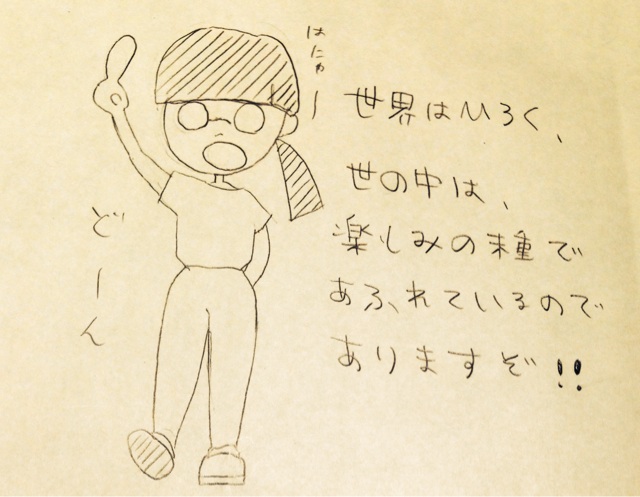 はにゃー
世界はひろく、
世の中は、
楽しみの種で
あふれているので
ありますぞ!!
どーん